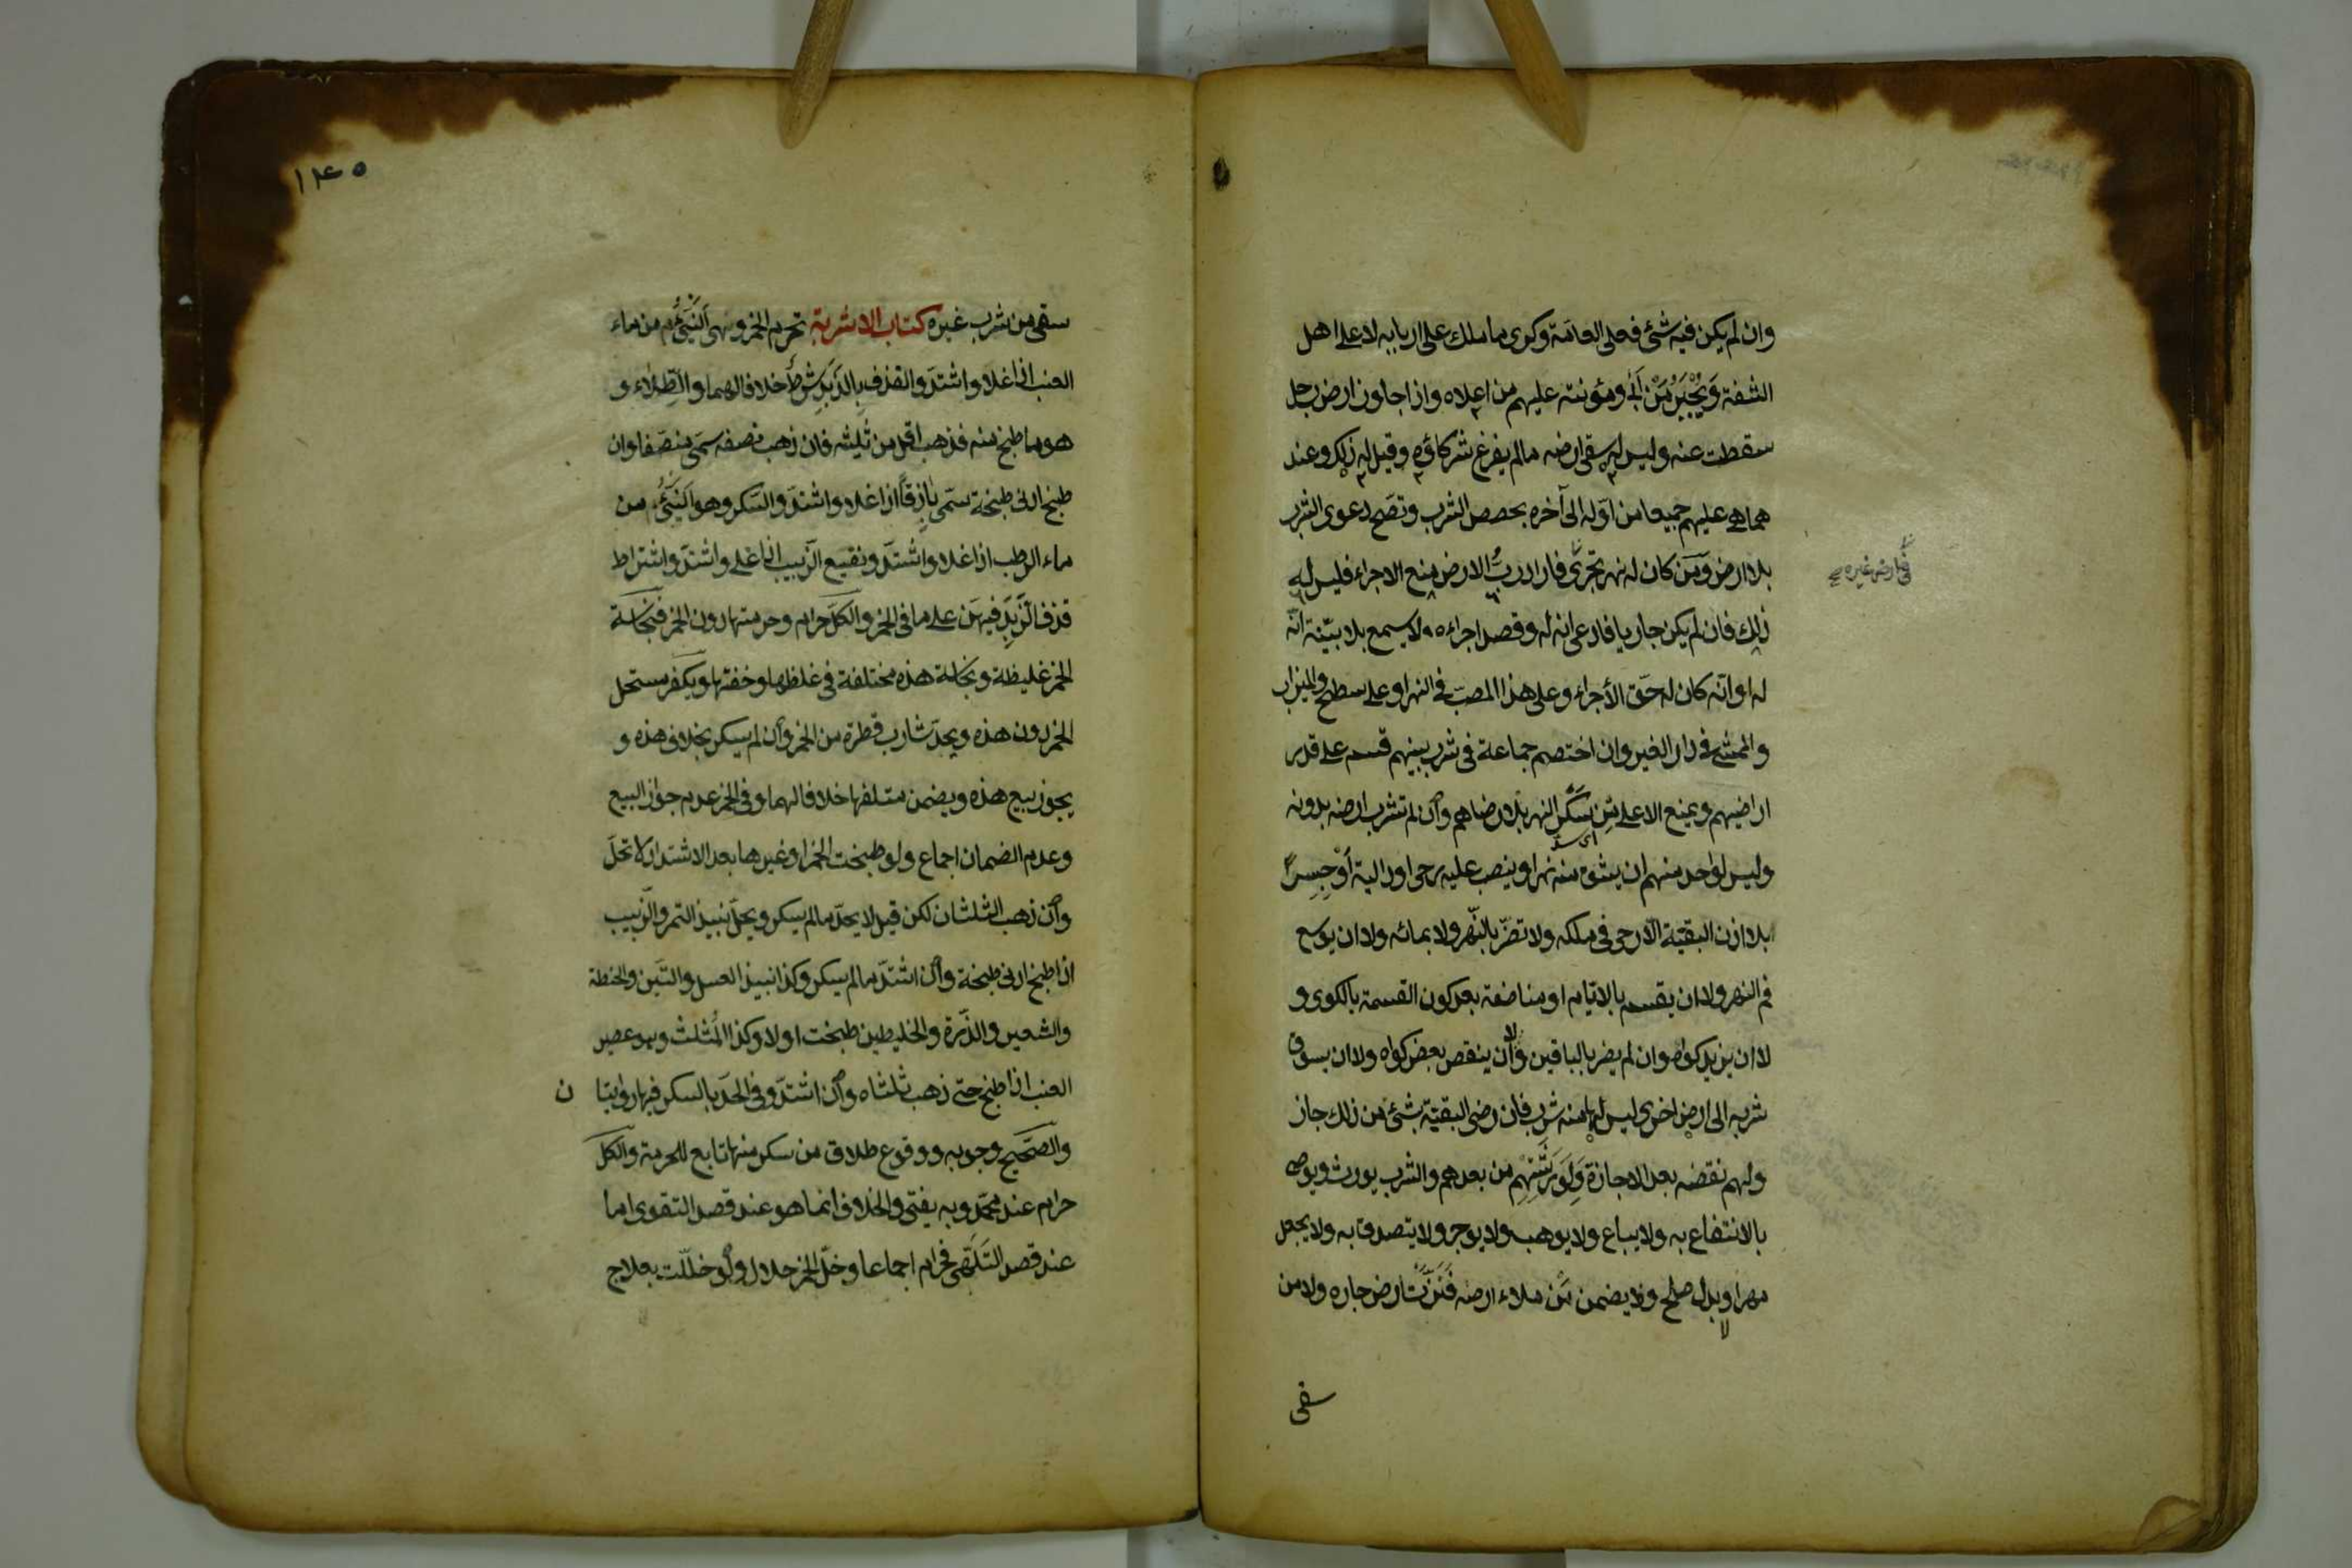 وان لم يكن فيه شئ فعلى العامّة وكرى ما ملك على اربابه لا على اهل
الشفة وَيُجْبَرُ مَنْ اَبٰى ومؤنته عليهم من اعلاه واذا جاوز ارض رجل
سقطت عنه وليس له سقى ارضه ما لم يفرغ شركاؤه وقيل له ذلك وعند
هما هى عليهم جميعا من اوّله الى آخره بحصص الشرب وتصح دعوى الشرب
بلا ارض وَمَن كان له نهر يجرى فاراد ربُّ الارض منع الاجراء فليس له
فى ارض غيره صح
ذلك فان لم يكن جاريا فادعى انه له وقصد اجراءه لا يسمع بلا بيّنة انّه
له او انّه كان له حَق الأجراء وعلى هذا المصبّ فى النهر او على سطح والميزاب
والممشى فى دار الغير وان اختصم جماعة فى شرب بينهم قسم على قدر
اراضيهم ويمنع الاعلى مِن سَكْرِ النهر بلا رضاهم وان لم تشرب ارضه بدونه
اى سدّ
وليس لواحد منهم ان يشق منه نهرا او ينصب عليه رحى او دالية أوْ جسرًا
بلا اذن البقيّة الّا رحى فى ملكه ولا تضرّ بالنّهر ولا بمائه ولا ان يوسع
فم النهر ولا ان يقسم بالايّام او مناصفة بعد كون القسمة بالكوى و
لا ان يزيد كواه وان لم يضر بالباقين ولا ان ينقص بعض كواه ولا ان يسوق
شربه الى ارض اخرى ليس لها منه شرب فان رضى البقيّة بشئ من ذلك جاز
ولهم نقضه بعد الاجازة وَلِوَرَثَتِهِم من بعدهم والشرب يورث ويوصى
بالانتفاع به ولا يباع ولا يوهب ولا يوجر ولا يتصدق به ولا يجعل
مهرا وبدل صلح ولا يضمن مَن ملاء ارضه فَنَزَّتْ ارض جاره ولا من
سقى
١٤٥
سقى من شرب غيره كتاب الاشربة تحرم الخمر وهى اَلنَّيِّئُ من ماء
العنب اذا غلا واشتدّ والقذف بِالزَّبَدِ شرطٌ خلافا لهما والطِّلاء و
هو ما طبخ منه فذهب اقل من ثُلثيه فان ذهب نصفه سمّى منصّفا وان
طبخ ادنى طبخة سمّى باذِقاً اذا غلا واشتدّ والسَّكر وهو اَلنَّيِّئُ من
ماء الرطب اذا غلا واشتدّ ونقيع الزّبيب اذا غلى واشتدّ واشتراط
قذف الزَّبَدِ فيهنّ على ما فى الخمر والكلّ حرام وحرمتها دون الخمر فنجاسة
الخمر غليظة ونجاسة هذه مختلفة فى غلظها وخفتها ويكفر مستحل
الخمر دون هذه ويحدّ شارب قطرة من الخمر وأن لم يسكر بخلاف هذه و
يجوز بيع هذه ويضمن متلفها خلافا لهما وفى الخمر عدم جواز البيع
وعدم الضمان اجماع ولو طبخت الخمر او غيرها بعد الاشتداد لا تحلّ
وان ذهب الثلثان لكن قيل لا يحدّ ما لم يسكر ويحلّ نبيذ التمر والزّبيب
اذا طبخ ادنى طبخة وان اشتدّ ما لم يسكر وكذا نبيذ العسل والتّين والحنطة
والشعير والذّرة والخليطين طبخت او لا وكذا المُثلث وهو عصير
العنب اذا طبخ حتى ذهب ثلثاه وان اشتدّ وفى الحدّ بالسكر فيها روايتا ن
والصّحيح وجوبه ووقوع طلاق من سكر منها تابع للحرمة والكلّ
حرام عند محمّد وبه يفتى والخلاف انما هو عند قصد التقوى اما
عند قصد التَلَهّى فحرام اجماعا وخلّ الخمر حلال ولو خلّلت بعلاج